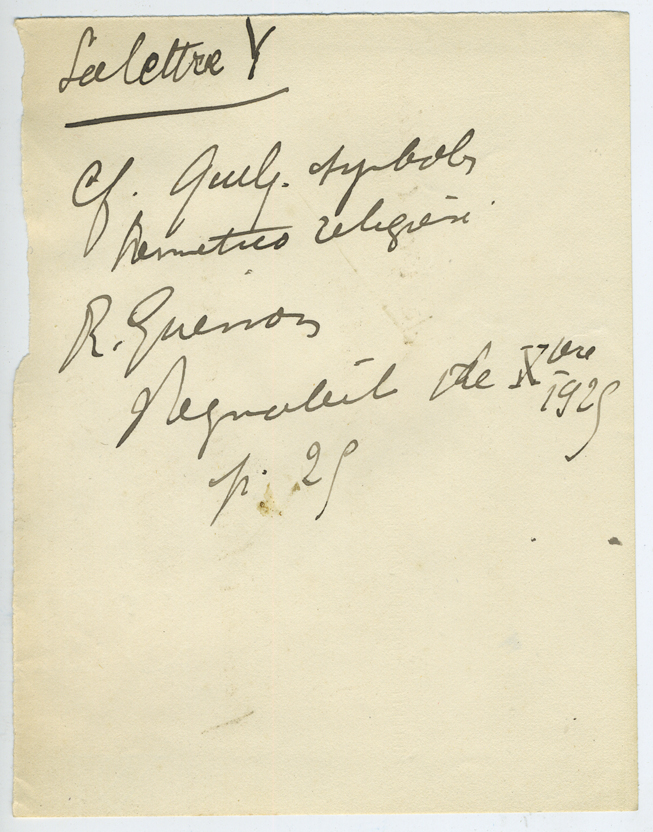 La lettre Y
Cf. Quelq. symboles
hermetico religieux
R. Guenon
Regnabit de Xbre
1925
p. 25